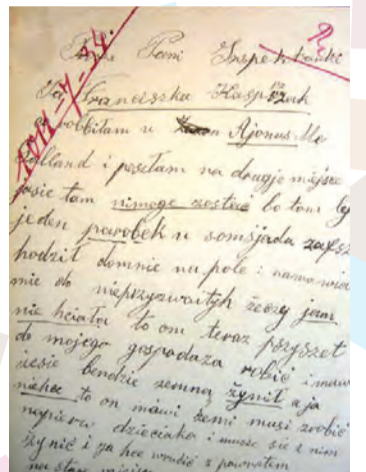 1017-II-34.
Pani Inspektorki
Ja Franciszka Kasprzack
robbiłam u Rjonus Mo
Holland i poszłam na drugje miejsce
josie tam nimoge zostać bo tom
jeden parobek u somsjada
hodził domnie na pole i namawia
mie do nieprzyzwaitych żeczy jam
nie hciała to om teraz poszyszet
do mojego gospodaża robić i mawi
żesie bendzie zemną żynił a ja
niehce to on mawi żemi musi zrobić
napierw dzieciaka i musze sie z nim
żynić i ja hce wrucić z pawrotem
na stare miejsce